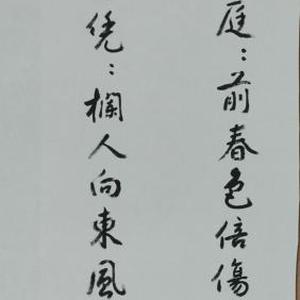 庭：前春色倍傷
凭：欄人向東風